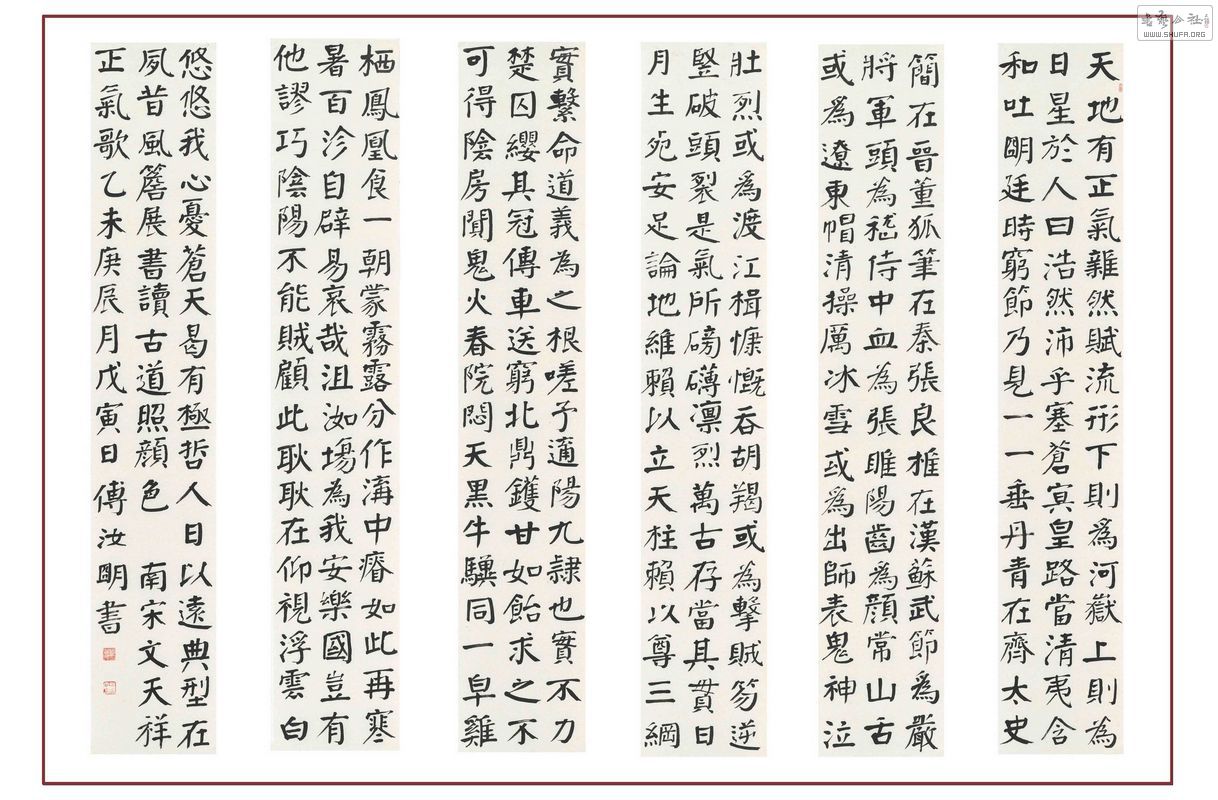 天地有正氣雜然賦流形下則為河嶽上則為
日星於人曰浩然沛乎塞蒼冥皇路當清夷含
和吐明廷時窮節乃見一一垂丹青在齊太史
簡在晉董狐筆在秦張良椎在漢蘇武節為嚴
將軍頭為嵇侍中血為張睢陽齒為顏常山舌
或為遼東帽清操厲冰雪或為出師表鬼神泣
壯烈或為渡江楫慷慨吞胡羯或為擊賊笏逆
豎破頭裂是氣所磅礴凛烈萬古存當其貫日
月生死安足論地維賴以立天柱賴以尊三綱
實繫命道義為之根嗟予遘陽九隸也實不力
楚囚纓其冠傳車送窮北鼎鑊甘如飴求之不
可得陰房闃鬼火春院閟天黑牛驥同一皁雞
栖鳳凰食一朝蒙霧露分作溝中瘠如此再寒
暑百沴自辟易哀哉沮洳場為我安樂國豈有
他謬巧陰陽不能賊顧此耿耿在仰視浮雲白
悠悠我心憂蒼天曷有極哲人日以遠典型在
夙昔風簷展書讀古道照顏色 南宋文天祥
正氣歌乙未庚辰月戊寅日傅汝明書
書藝公社
WWW.SHUFA.ORG